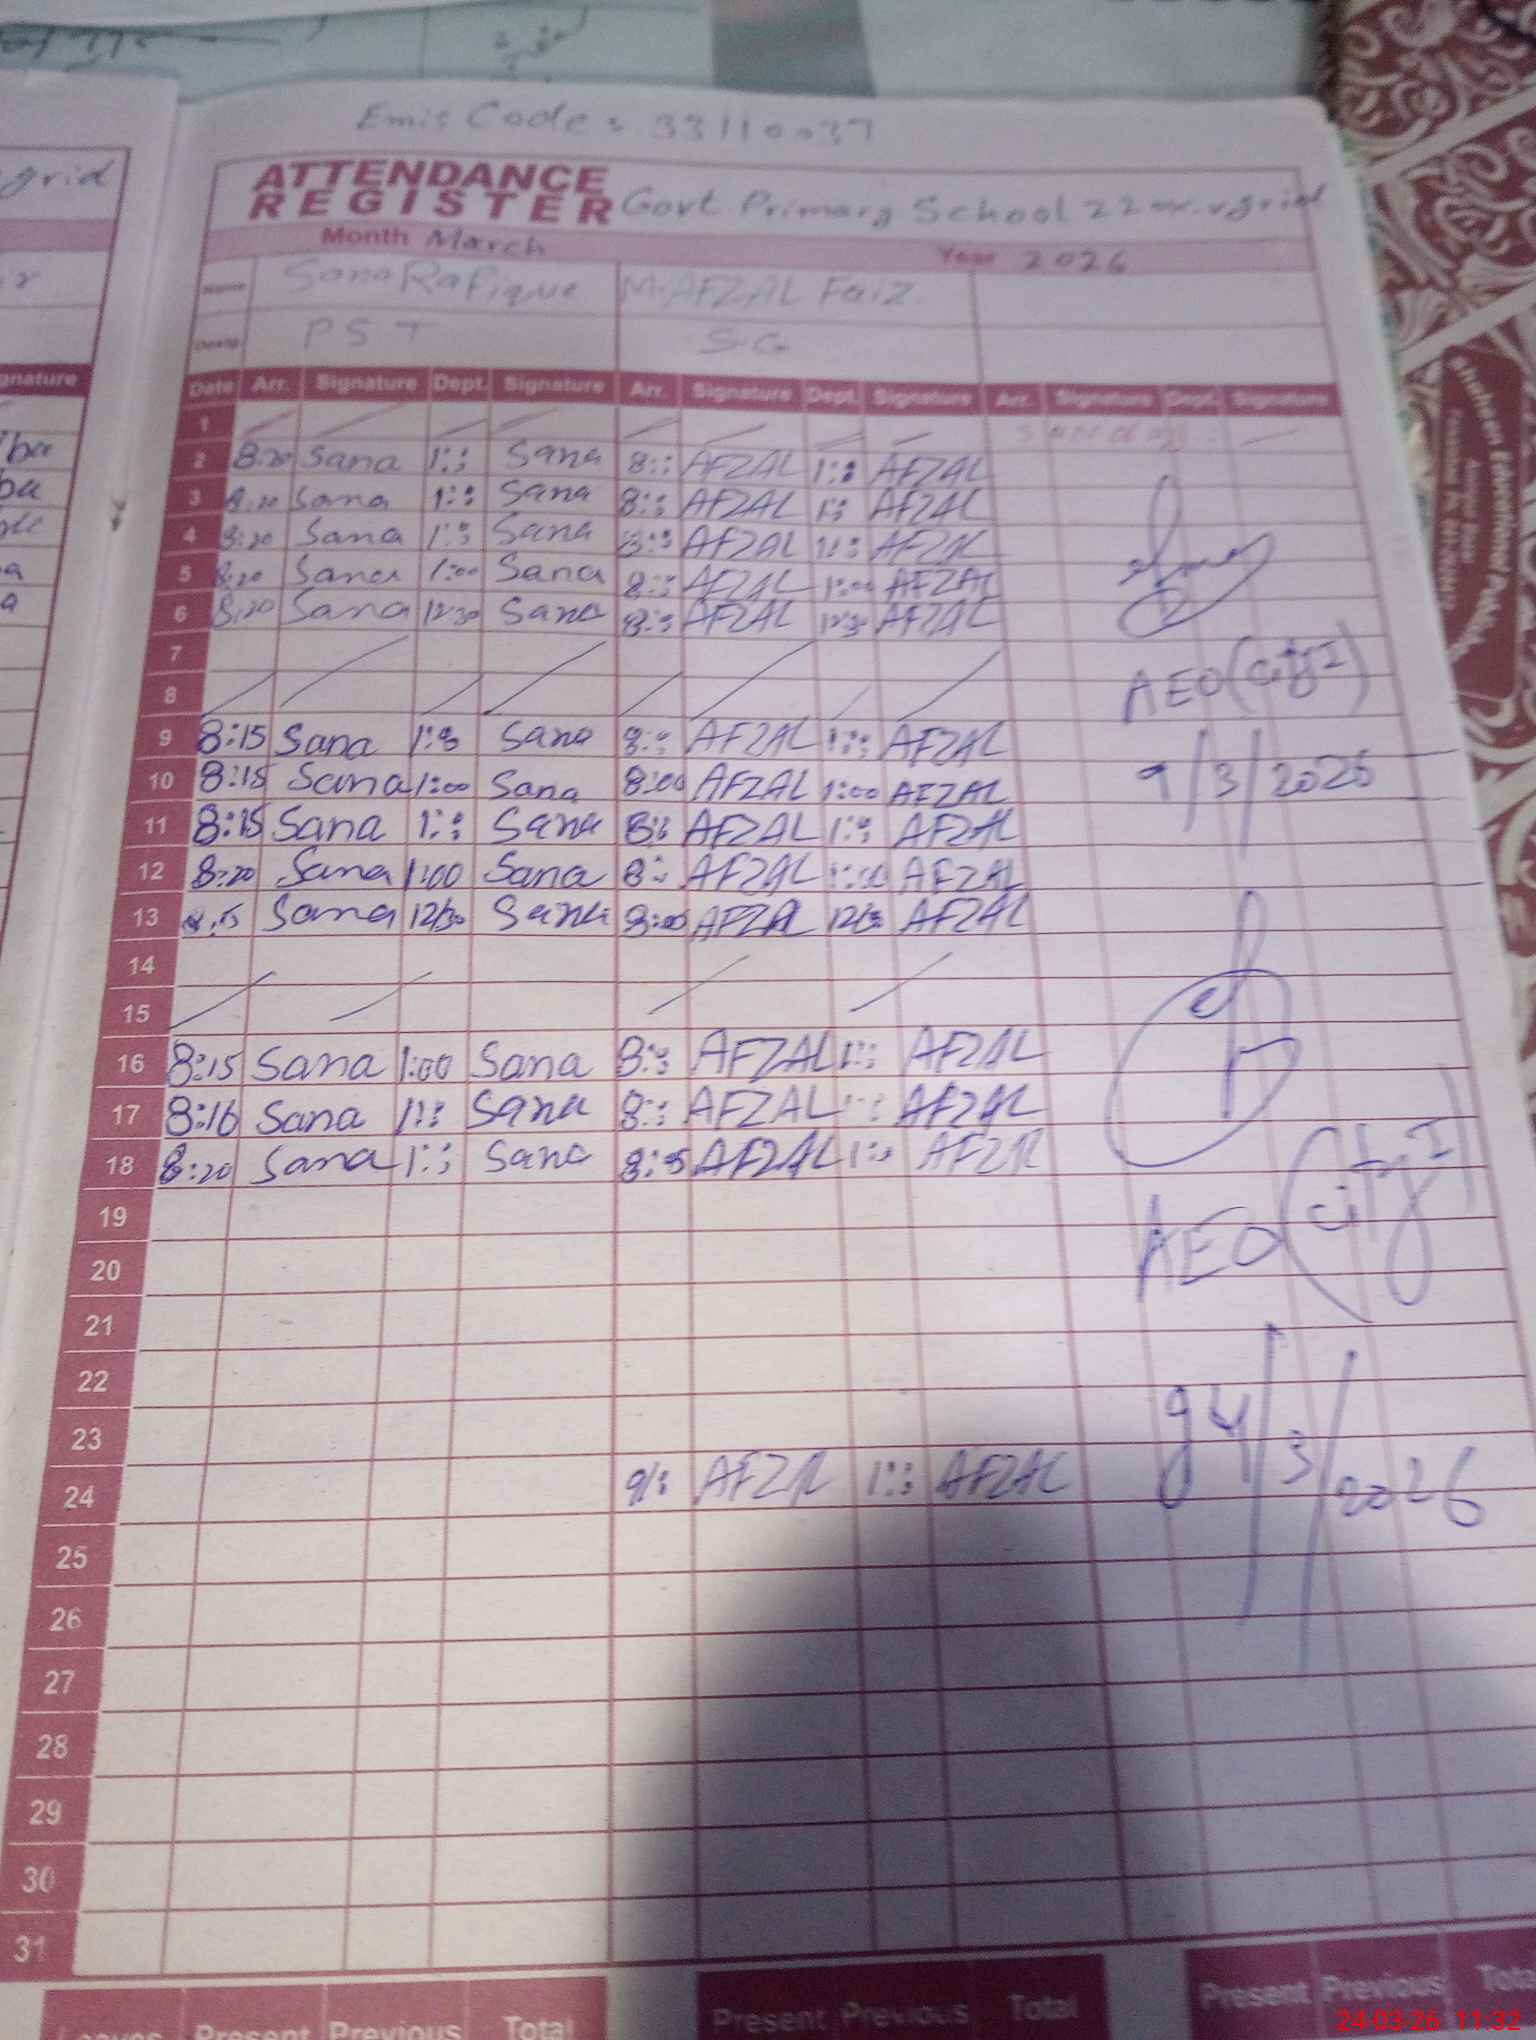 Emis Code: 33110037
grid
ATTENDANCE
REGISTER Govt. Primary School 22
Month March Year 2026
Name Sana Rafique M. AFZAL Faiz
Desig. PST S.G
gnature Date Arr. Signature Dept. Signature Arr. Signature Dept. Signature Arr. Signature Dept. Signature
1 Sunday
2 8:20 Sana 1:: Sana 8:: AFZAL 1:: AFZAL
3 8:20 Sana 1:: Sana 8:: AFZAL 1:: AFZAL
4 8:20 Sana 1:: Sana 8:: AFZAL 1:: AFZAL
5 8:20 Sana 1:00 Sana 8:: AFZAL 1:00 AFZAL
6 8:20 Sana 12:30 Sana 8:: AFZAL 12:30 AFZAL
7
8 AEO (City I)
9 8:15 Sana 1:: Sana 8:: AFZAL 1:: AFZAL
10 8:15 Sana 1:00 Sana 8:00 AFZAL 1:00 AFZAL 9/3/2026
11 8:15 Sana 1:: Sana 8:: AFZAL 1:: AFZAL
12 8:20 Sana 1:00 Sana 8:: AFZAL 1:00 AFZAL
13 Sana 12/30 Sana 8:00 AFZAL AFZAL
14
15
16 8:15 Sana 1:00 Sana 8:: AFZAL 1:: AFZAL
17 8:16 Sana 1:: Sana 8:: AFZAL 1:: AFZAL
18 8:20 Sana 1:: Sana AFZAL 1:: AFZAL
19
20 AEO (City I)
21
22
23
24 9/: AFZAL 1:: AFZAL /3/2026
25
26
27
28
29
30
31
Leaves Present Previous Total Present Previous Total Present Previous Tota
24-03-26 11:32